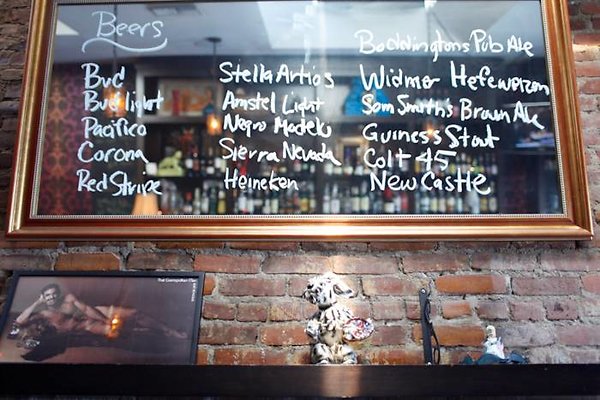 Beers
Bud
Bud light
Pacifico
Corona
Red Stripe
Stella Artios
Amstel Light
Negro Modelo
Sierra Nevada
Heineken
Boddingtons Pub Ale
Widmer Hefeweizen
Sam Smith's Brown Ale
Guiness Stout
Colt 45
New Castle